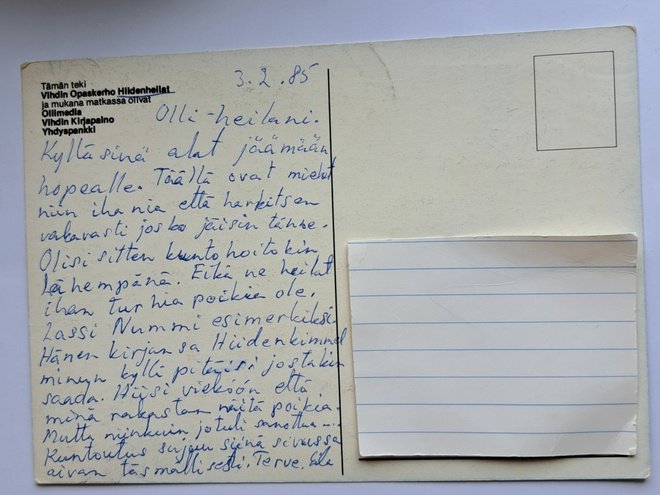 Tämän teki
Vihdin Opaskerho Hiidenheilat
ja mukana matkassa olivat
Ollimedia
Vihdin Kirjapaino
Yhdyspankki
3.2.85
Olli-heilani.
Kyllä sinä alat jäämään
hopealle. Täällä ovat miehet
niin ihania että harkitsen
vakavasti josko jäisin tänne.
Olisi sitten kuntohoitokin
lähempänä. Eikä ne heilat
ihan turhia poikia ole.
Lassi Nummi esimerkiksi
Hänen kirjansa Hiidenkimmel
minun kyllä pitäisi jostakin
saada. Hiisi vieköön että
minä rakastan näitä poikia.
Mutta niinkuin jo tuli sanottua...
Kuntoutus sujuu siinä sivussa
aivan täsmällisesti. Terve.